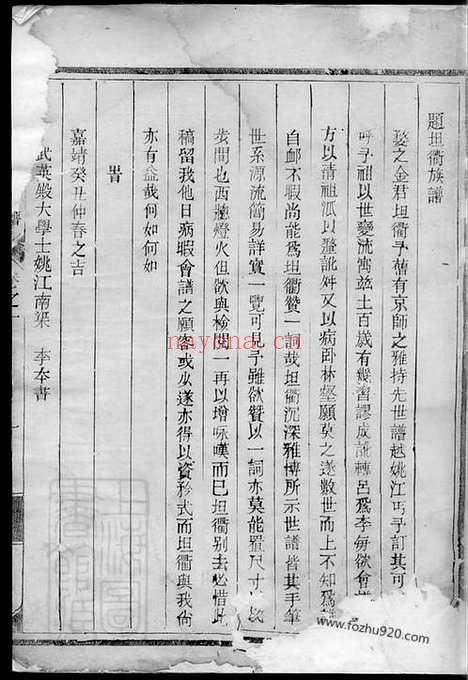 題坦衢族譜
婺之金君坦衢予舊有京師之雅持先世譜越姚江丐予訂其可
呼予祖以世變流寓茲土百歲有幾習謬成訛轉呂爲李每欲會
方以清祖派以釐訛舛又以病卧林壑願莫之遂數世而上不知爲
自邮不暇尚能爲坦衢贊一詞哉坦衢沉深雅博所示世譜皆其手筆
世系源流簡易詳實一覽可見予雖欲贊以一詞亦莫能置尺寸
步間也西牕燈火但欲與檢閱一再以增咏嘆而已坦衢别去必惜此
稿留我他日病暇會譜之願容或少遂亦得以資矜式而坦衢與我尚
亦有益哉何如何如
旹
嘉靖癸丑仲春之吉
武英殿大學士姚江南渠 李本書
nayona.cn
www.fozhu920.com